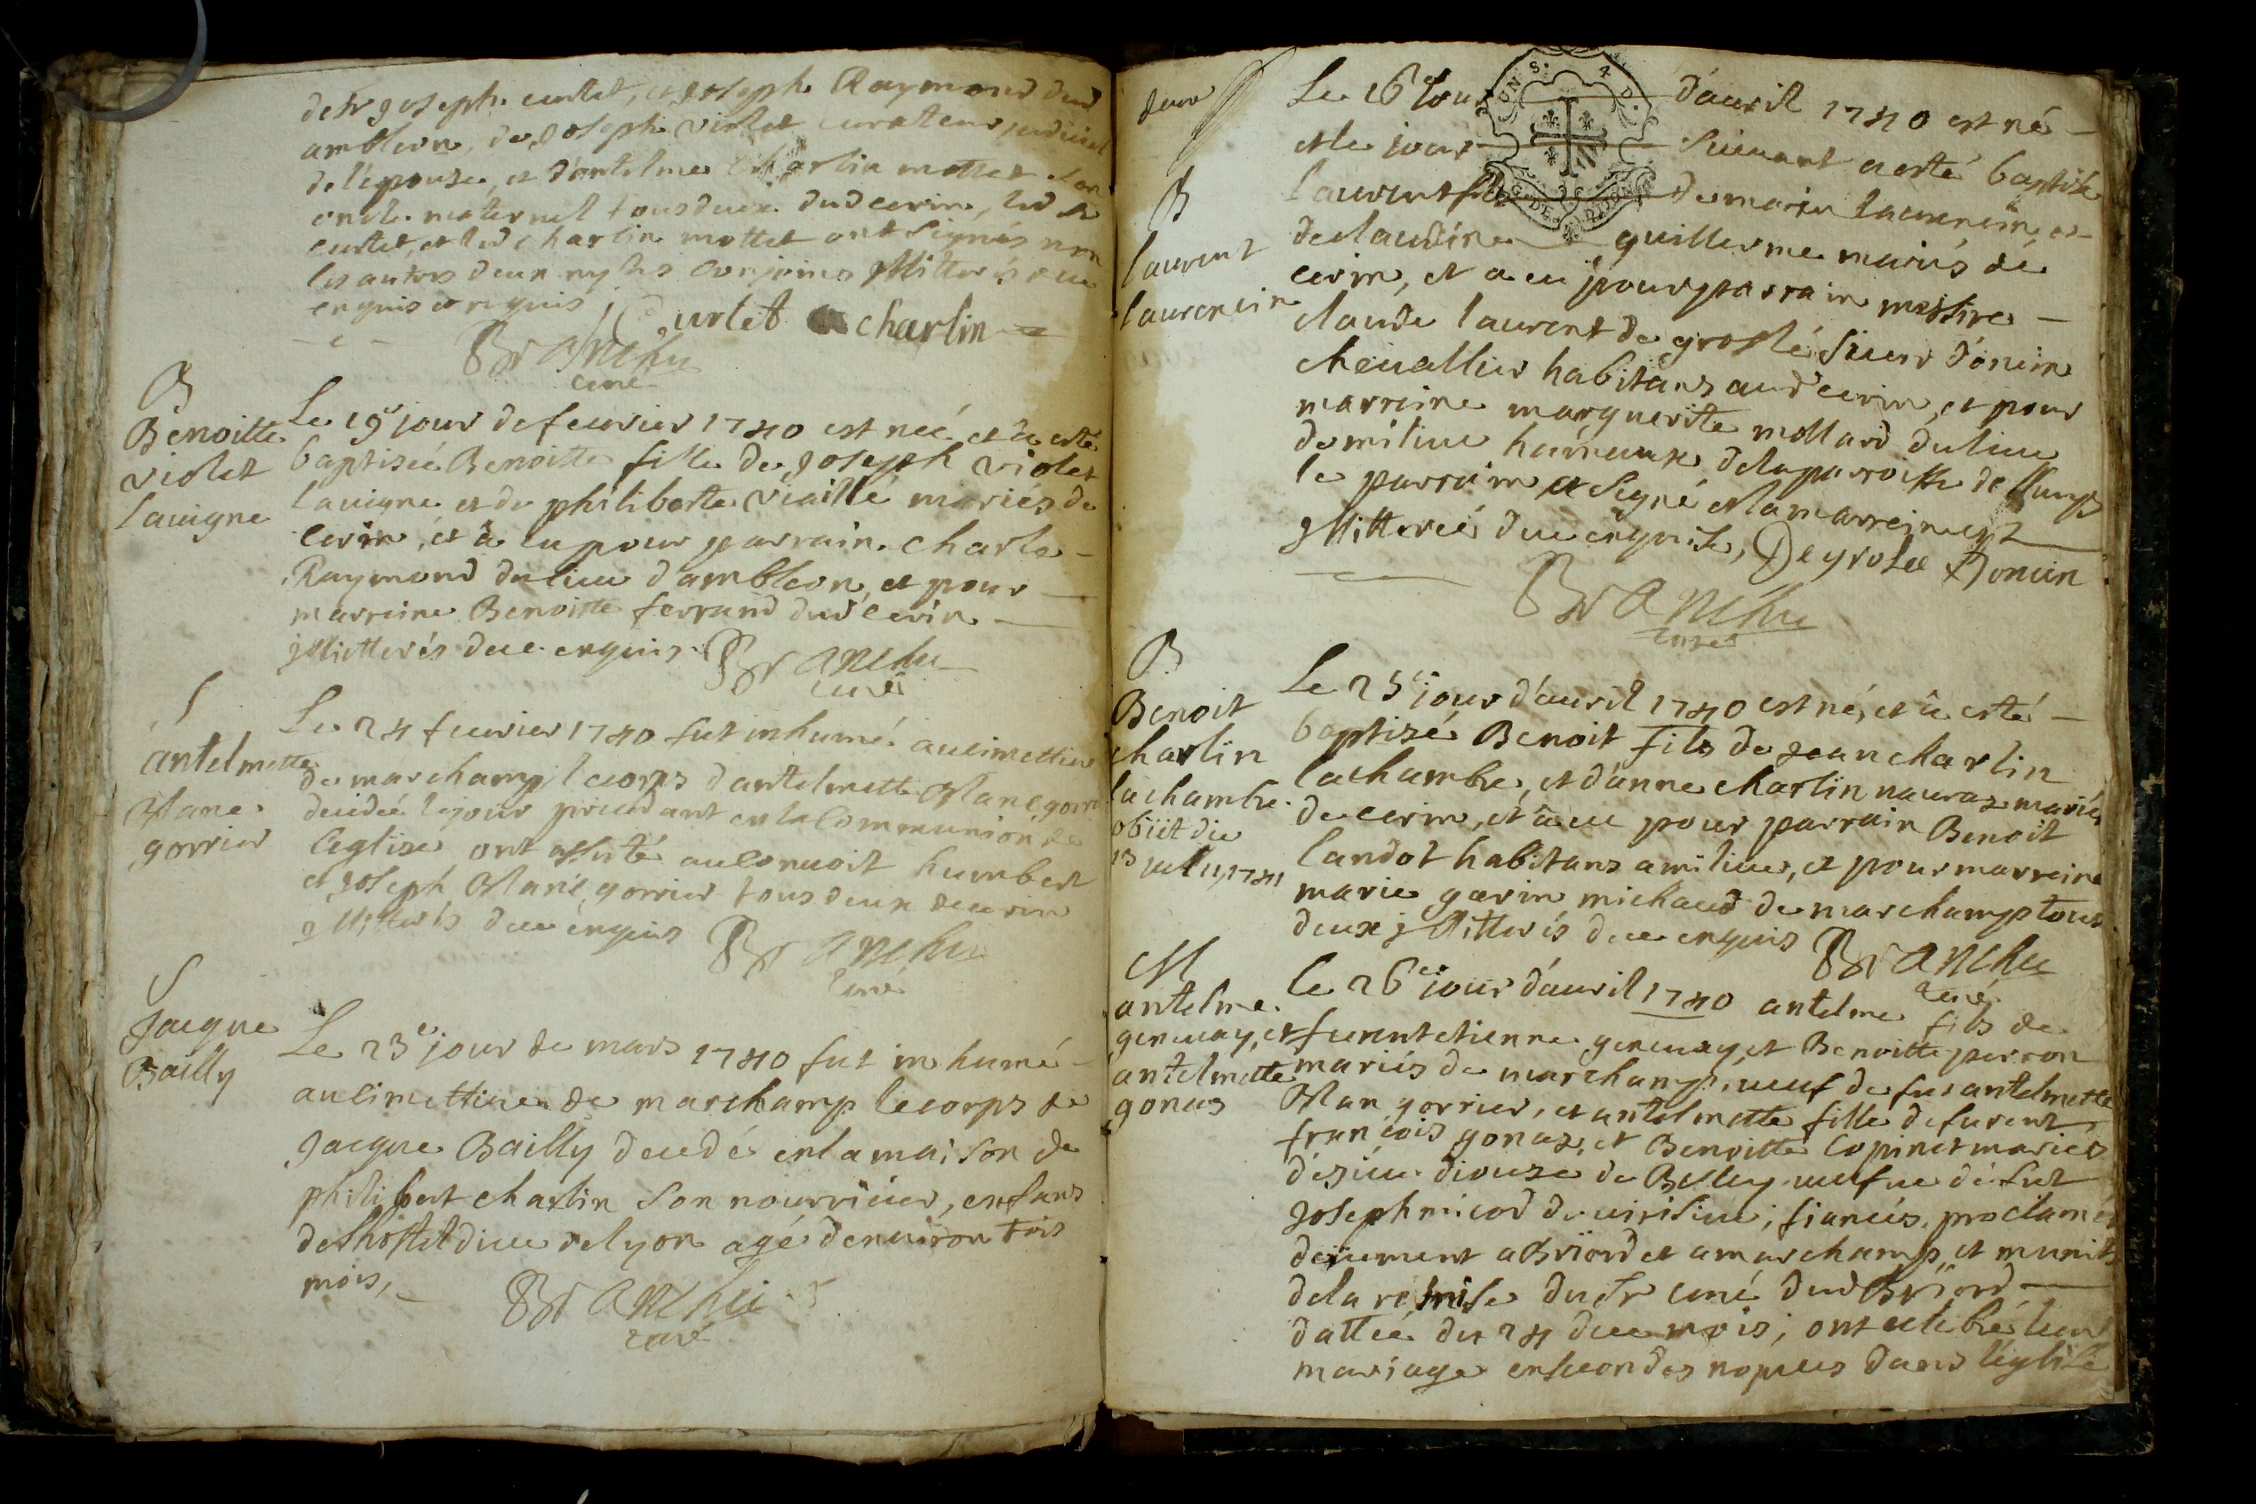 de Sr Joseph curtet, et Joseph Raymond dud
ambleon, de Joseph violet curateur judiciel
de l'épouse, et d'antelme Charlin mottet son
oncle maternel tous deux dud cerin, led Sr
curtet, et led Charlin mottet ont signés non
les autres deux ny les conjoins illitterés de ce
enquis et requis
Curtet charlin
Branche
curé
B
Benoitte
violet
lauigne
Le 19e jour de feurier 1740 est neé et â esté
baptiseé Benoitte fille de Joseph violet
lauigne et de philiberte viaillé mariés de
cerin, et â eu pour parrain charle
Raymond du lieu d'ambleon, et pour
marreine Benoitte ferrand dud cerin
illitterés de ce enquis Branche
curé
S
antelmette
Mane
gorrier
Le 24 feurier 1740 fut inhumé au cimettiere
de marchamp le corps d'antelmette Mane gorri
decedeé le jour precedant en la Communion de
l'eglise, ont assisté au conuoit humbert
et Joseph Mane gorrier tous deux de cerin
illitterés de ce enquis Branche
curé
S
Jacque
Bailly
Le 23e jour de mars 1740 fut inhumé
au cimettiere de marchamp le corps de
Jacque Bailly decedé en la maison de
philibert charlin son nourricier, enfans
de l'hostel dieu de lyon agé d'enuiron trois
mois,
Branche
curé
deux
B
laurent
laurencin
Le 16e jour d'auril 1740 est né
et le jour suiuant a esté baptisé
laurent fils de marin laurencin et
de claudine guillerme mariés dé
cerin, et a eu pour parrain messire
claude laurent de groslé sieur d'oncin
cheuallier habitans aud cerin, et pour
marreine marguerite mollard du lieu
de milieu hameaux de la parroisse de
le parrain a signé et la marreine est
illitereé de ce enquise, Degrolee Doncin
Branche
curé
B
Benoit
charlin
lachambre
obiit die
13 july 1741
Le 25e jour d'auril 1740 est né, et â esté
baptisé Benoit fils de Jean charlin
lachambre, et d'anne charlin nauraz mariés
de cerin, et â eu pour parrain Benoit
landot habitans a milieu, et pour marreine
marie garin michaud de marchamp tous
deux illitterés de ce enquis Branche
curé
M
antelme
geneuay, et
antelmette
gonas
Le 26e jour d'auril 1740 antelme fils de
furent etienne geneuay, et Benoitte perron
mariés de marchamp, ueuf de fut antelmette
Man gorrier, et antelmette fille de furent
françois gonaz, et Benoitte Copinet mariés
diouze de Belley uefue de fut
Joseph nicod de uirisieu; fiancés, proclamés
deüement a Briord et a marchamp, et munits
de la remise du Sr curé dud Briord
datteé du 24 de ce mois; ont celebré leur
mariage en secondes nopces dans l'églisé